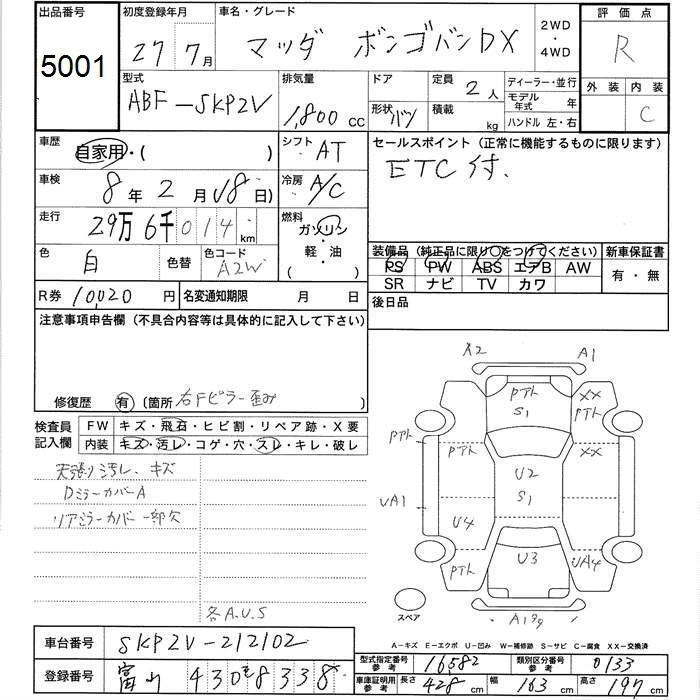 出品番号 初度登録年月 車名・グレード 2WD・4WD 評価点
5001 27 7月 マツダ ボンゴバンDX R
型式 排気量 ドア 定員 ディーラー・並行 外装 内装
ABF-SKP2V 1,800 cc 形状 バン 2人 積載 kg モデル年式 年 ハンドル 左・右 C
車歴 自家用・( ) シフト AT セールスポイント (正常に機能するものに限ります)
車検 8年2月18日) 冷房 A/C ETC付.
走行 29万6千014km 燃料 ガソリン・軽・油・( )
色 白 色替 色コード A2W
装備品 (純正品に限り○をつけてください) 新車保証書
PS PW ABS エアB AW 有・無
SR ナビ TV カワ
R券 10,020円 名変通知期限 月 日 後日品
注意事項申告欄 (不具合内容等は具体的に記入して下さい)
修復歴 有 (箇所 右Fピラー歪み
検査員記入欄 FW キズ・飛石・ヒビ割・リペア跡・X要
内装 キズ・汚レ・コゲ・穴・スレ・キレ・破レ
天張り汚レ、キズ
DミラーカバーA
リアミラーカバー一部欠
各A.U.S
X2 A1
PTケ XX
S1 PTケ
PTケ PTケ XX
U2
S1
UA1
U4
U3
PTケ UA4
スペア
A-キズ E-エクボ U-凹み W-補修跡 S-サビ C-腐食 XX-交換済
車台番号 SKP2V-212102
型式指定番号 参考 16582 類別区分番号 参考 0133
登録番号 富山 430 8338
車庫証明用 参考 長さ 428cm 幅 163cm 高さ 197cm